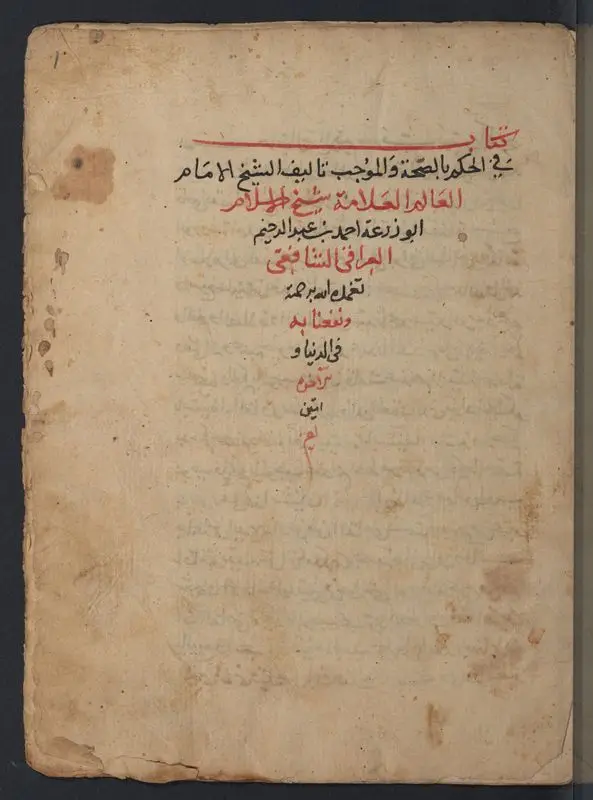 1
كتاب
في الحكم بالصحة والموجب تاليف الشيخ الامام
العالم العلامة شيخ الاسلام
ابو زرعة احمد بن عبد الرحيم
العراقي الشافعي
تغمده الله برحمته
ونفعنا به
في الدنيا و
الاخرة
امين